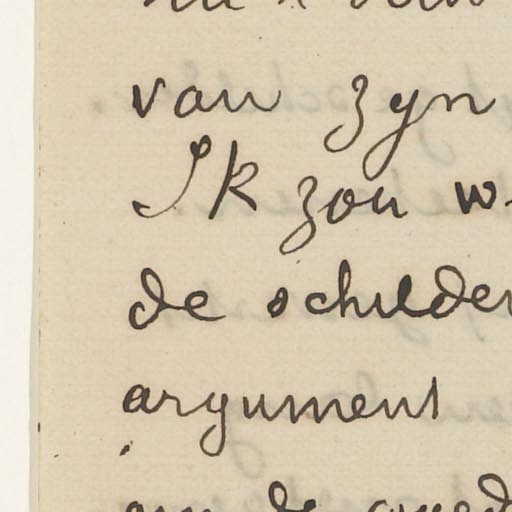 van zyn
Ik zou w
de schilder
argument
om de